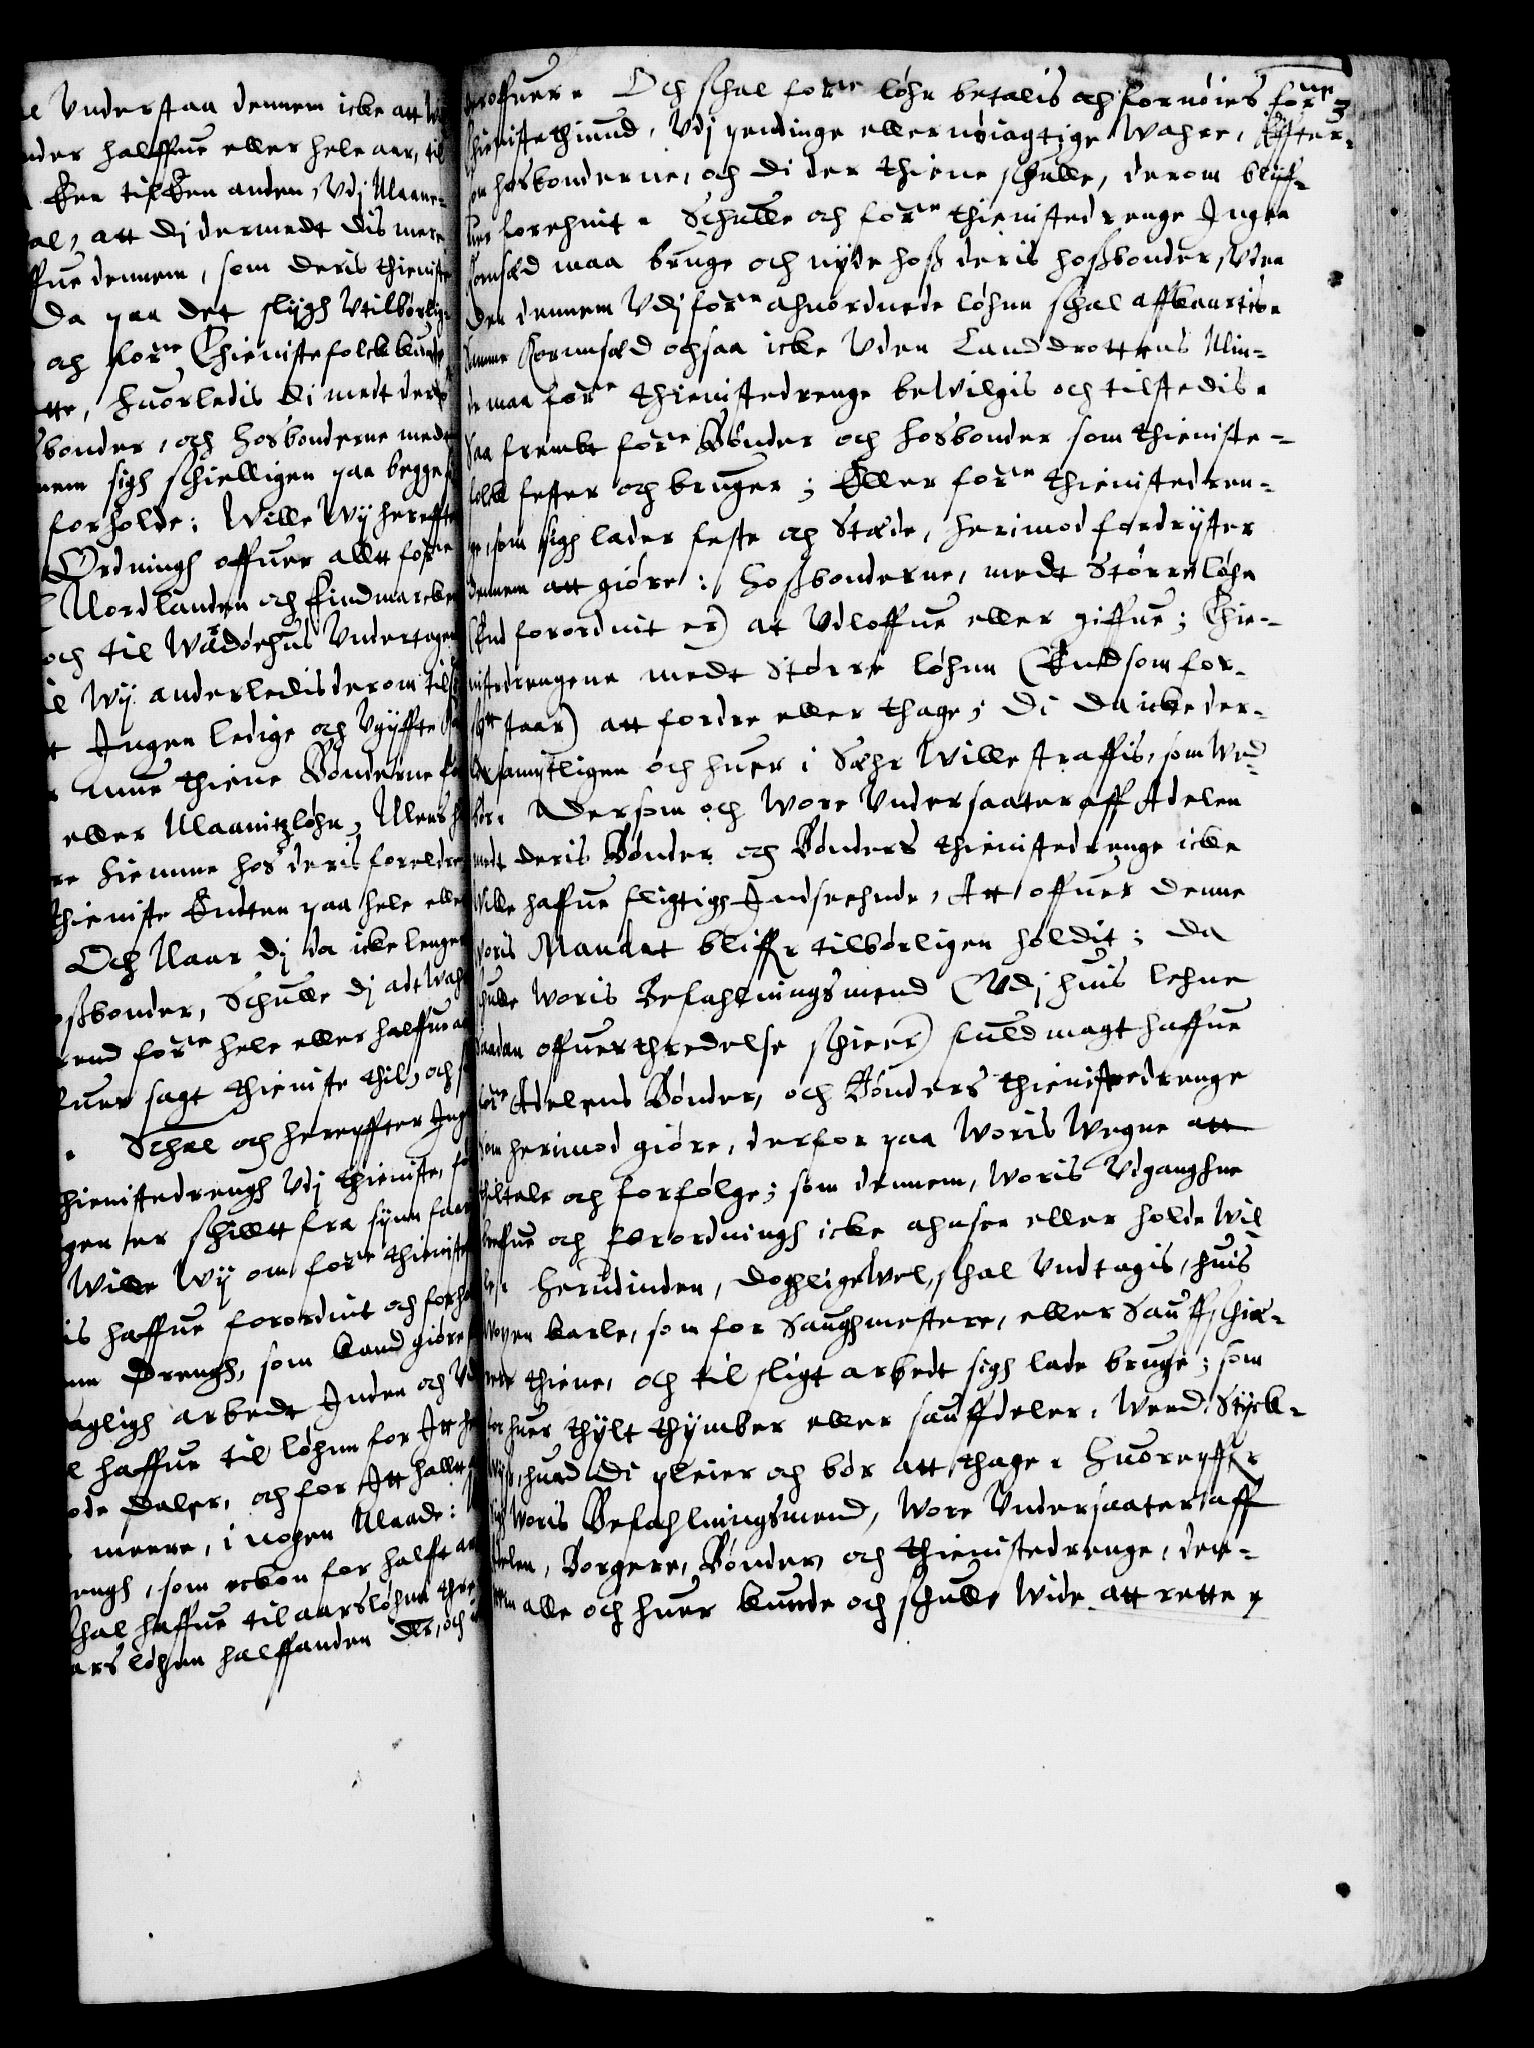 Understaa dennem icke att
nder halffue eller hele aar, til
Een til Een anden, Vdj Maane-
al, att dj dermedt dis mere
ffue dennem, som deris thieniste
Da paa det sligh Vtilbørlig-
och forne Thienistefolck kunde
tte, huorledis di medt deris
sbonder, och hosbonderne medt
nem sigh schielligen paa begge
forholde; Wille Wy hereffter
Ordningh offuer allt forne
Nordlanden och Findmarcken
och til Wadøehus Undertagen
Wy anderledis derom til
Ingen ledige och Vgyffte
unne thiene Bønderne
eller Maanitzløhn, Mens
re hiemme hos deris foreldre
thieniste Endten paa hele eller
Och Naar dj da icke lenger
ossbonder, Schulle dj adt
rend forne hele eller halffue
luer sagt thieniste thil, och
Schal och hereffter
thienistedrengh Vdj thieniste,
gen er schillt fra synn
Wille Wy om forne thieniste
is haffue forordnit och
nn Drengh, som kand giøre
agligh arbedt Inden och
haffue til løhnn for Itt
ode Daler, och for Itt halfft
meere, i nogen Maade:
rengh, som eckon for halfft
schal haffue til aarsløhnn
ars løhnn halffanden Dlr, och
3
deroffuer. Och schal forne løhn betalis och fornøies forne
thienistethiund, Vdj pendinge eller nøiagtige Wahre, Effter-
som hosbonderne, och di der thiene schulle, derom bliff-
uer forehnit. Schulle och forne thienistedrenge Ingen
Kornsæd maa bruge och nyde hoss deris hossbonder, Vden
den dennem Vdj forne ahnordnede løhnn schal affkaartis.
Samme Kornnsæd ochsaa icke Vden Landdrottens Min-
de maa forne thienistedrenge bewilgis och tilstedis.
Saa frembt forne Bønder och hosbonder som thieniste-
folck fester och bruger; Eller forne thienistedren-
ge, som sigh lader feste och Stæde, herimod fordrister
dennem att giøre: Hossbonderne, medt Større løhn
(End forordnit er) at Vdloffue eller giffue; Thie-
nistedrengene medt Større løhnn (End som for-
schrt staar) att fordre eller thage; Di da icke der-
samptligen och huer i Sæhr Wille straffis, som Wed-
bør. Dersom och Wore Undersaater aff Adelen
medt deris Bønder och Bønders thienistedrenge icke
Wille haffue fligtigh Indseehnde, Att offuer denne
Woris Mandat bliffr tilbørligen holdit; da
schulle Woris Befahlningsmend (Vdj huis lehne
saadan offuerthredelse schieer) fuldmagt haffue
forne Adelens Bønder, och Bønders thienistedrenge
som herimod giøre, derfor paa Woris Wegne att
thiltale och forfølge; som dennem, Woris Vdganghne
breffue och forordningh icke ahnsee eller holde Wil-
le. Herudinden, dogh ligewel, schal Undtagis, huis
Nogen karle, som for Saughmestere, eller Sauffschie-
rere thiene, och til sligt arbedt sigh lade bruge; som
for huer thylt thymber eller sauffdeler, Weed Styck-
wiss, huad di pleier och bør att thage. Huoreffter
sigh Woris Befahlningsmend, Wore Undersaater aff
Adelen, Borgere, Bønder, och thienistedrenge, den-
nem alle och huer kunde och schulle Wide att rette.